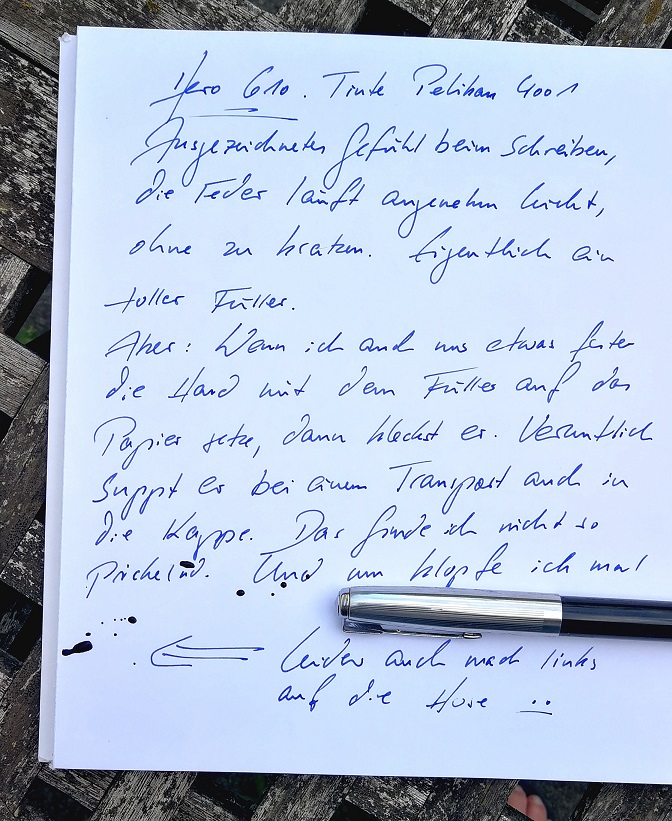 Hero 610. Tinte Pelikan 4001
Ausgezeichnetes Gefühl beim Schreiben,
die Feder läuft angenehm leicht,
ohne zu kratzen. Eigentlich ein
toller Füller.
Aber: Wenn ich auch nur etwas fester
die Hand mit dem Füller auf das
Papier setze, dann kleckst er. Vermutlich
suppt er bei einem Transport auch in
die Kappe. Das finde ich nicht so
prickelnd. Und nun klopfe ich mal
leider auch nach links
auf die Hose